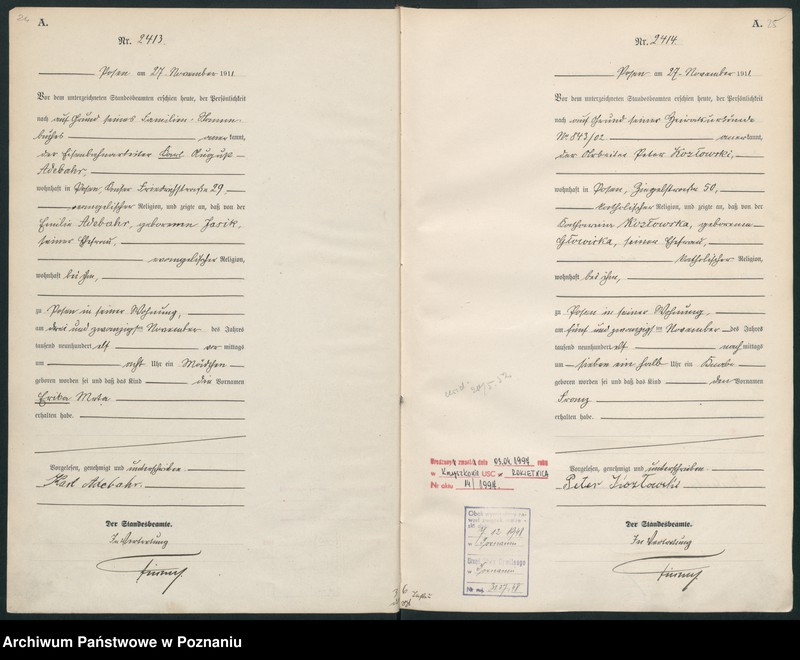 24
A.
Nr. 2413
Posen am 27 November 1911
Vor dem unterzeichneten Standesbeamten erschien heute, der Persönlichkeit
nach auf Grund seines Familien-Stamm-
buches anerkannt,
der Eisenbahnarbeiter Karl August
Adebahr,
wohnhaft in Posen, 29,
evangelischer Religion, und zeigte an, daß von der
Emilie Adebahr, geborenen Jasik,
seiner Ehefrau,
evangelischer Religion,
wohnhaft bei ihm,
zu Posen in seiner Wohnung,
am drei und zwanzigsten November des Jahres
tausend neunhundert elf vormittags
um acht Uhr ein Mädchen
geboren worden sei und daß das Kind die Vornamen
Erika Meta
erhalten habe.
Vorgelesen, genehmigt und unterschrieben
Karl Adebahr.
Der Standesbeamte.
In Vertretung
A. 25
Nr. 2414
Posen am 27 November 1911
Vor dem unterzeichneten Standesbeamten erschien heute, der Persönlichkeit
nach auf Grund seiner Heiratsurkunde
Nr 843/02 anerkannt,
der Arbeiter Peter Kozłowski,
wohnhaft in Posen, Ziegelstraße 50,
katholischer Religion, und zeigte an, daß von der
Kozłowska, geborenen
Głowicka, seiner Ehefrau,
katholischer Religion,
wohnhaft bei ihm,
zu Posen in seiner Wohnung,
am fünf und zwanzigsten November des Jahres
tausend neunhundert elf nachmittags
um sieben ein halb Uhr ein Knabe
geboren worden sei und daß das Kind den Vornamen
Franz
erhalten habe.
Vorgelesen, genehmigt und unterschrieben
Peter Kozłowski
Der Standesbeamte.
In Vertretung
zmarł dnia 03.04.1994 roku
w USC w ROKIETNICA
Nr aktu 14/1994
Archiwum Państwowe w Poznaniu